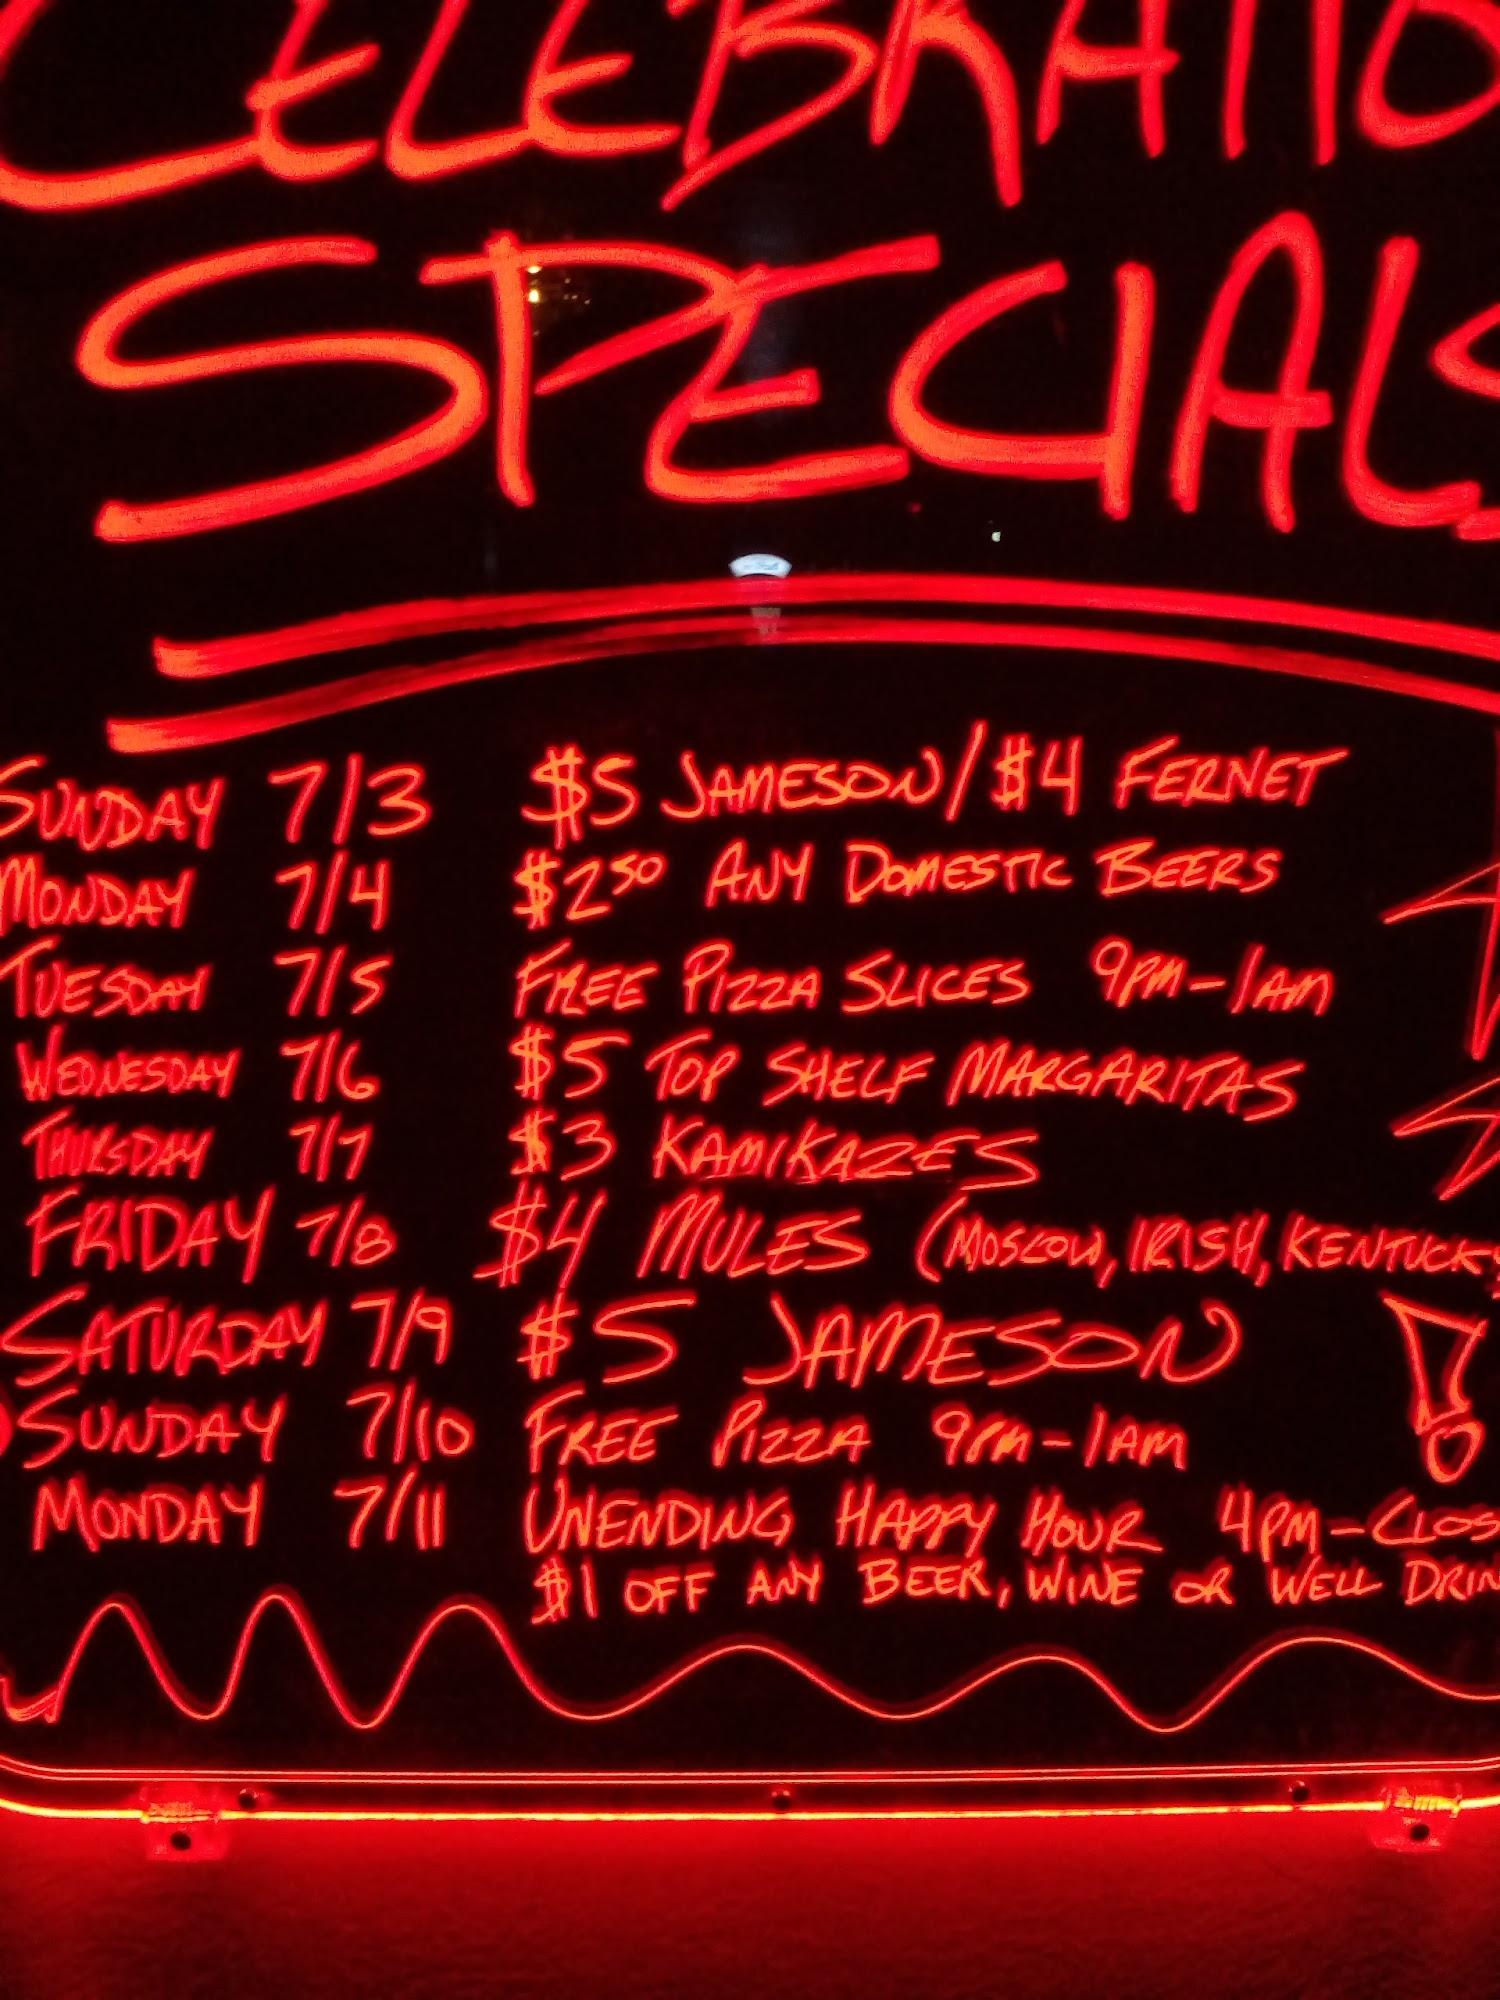 CELEBRATIO
SPECIALS
SUNDAY 7/3 $5 JAMESON/$4 FERNET
MONDAY 7/4 $2.50 ANY DOMESTIC BEERS
TUESDAY 7/5 FREE PIZZA SLICES 9PM-1AM
WEDNESDAY 7/6 $5 TOP SHELF MARGARITAS
THURSDAY 7/7 $3 KAMIKAZES
FRIDAY 7/8 $4 MULES (MOSCOW, IRISH, KENTUCKY
SATURDAY 7/9 $5 JAMESON !
SUNDAY 7/10 FREE PIZZA 9PM-1AM
MONDAY 7/11 UNENDING HAPPY HOUR 4PM-CLOS
$1 OFF ANY BEER, WINE OR WELL DRIN